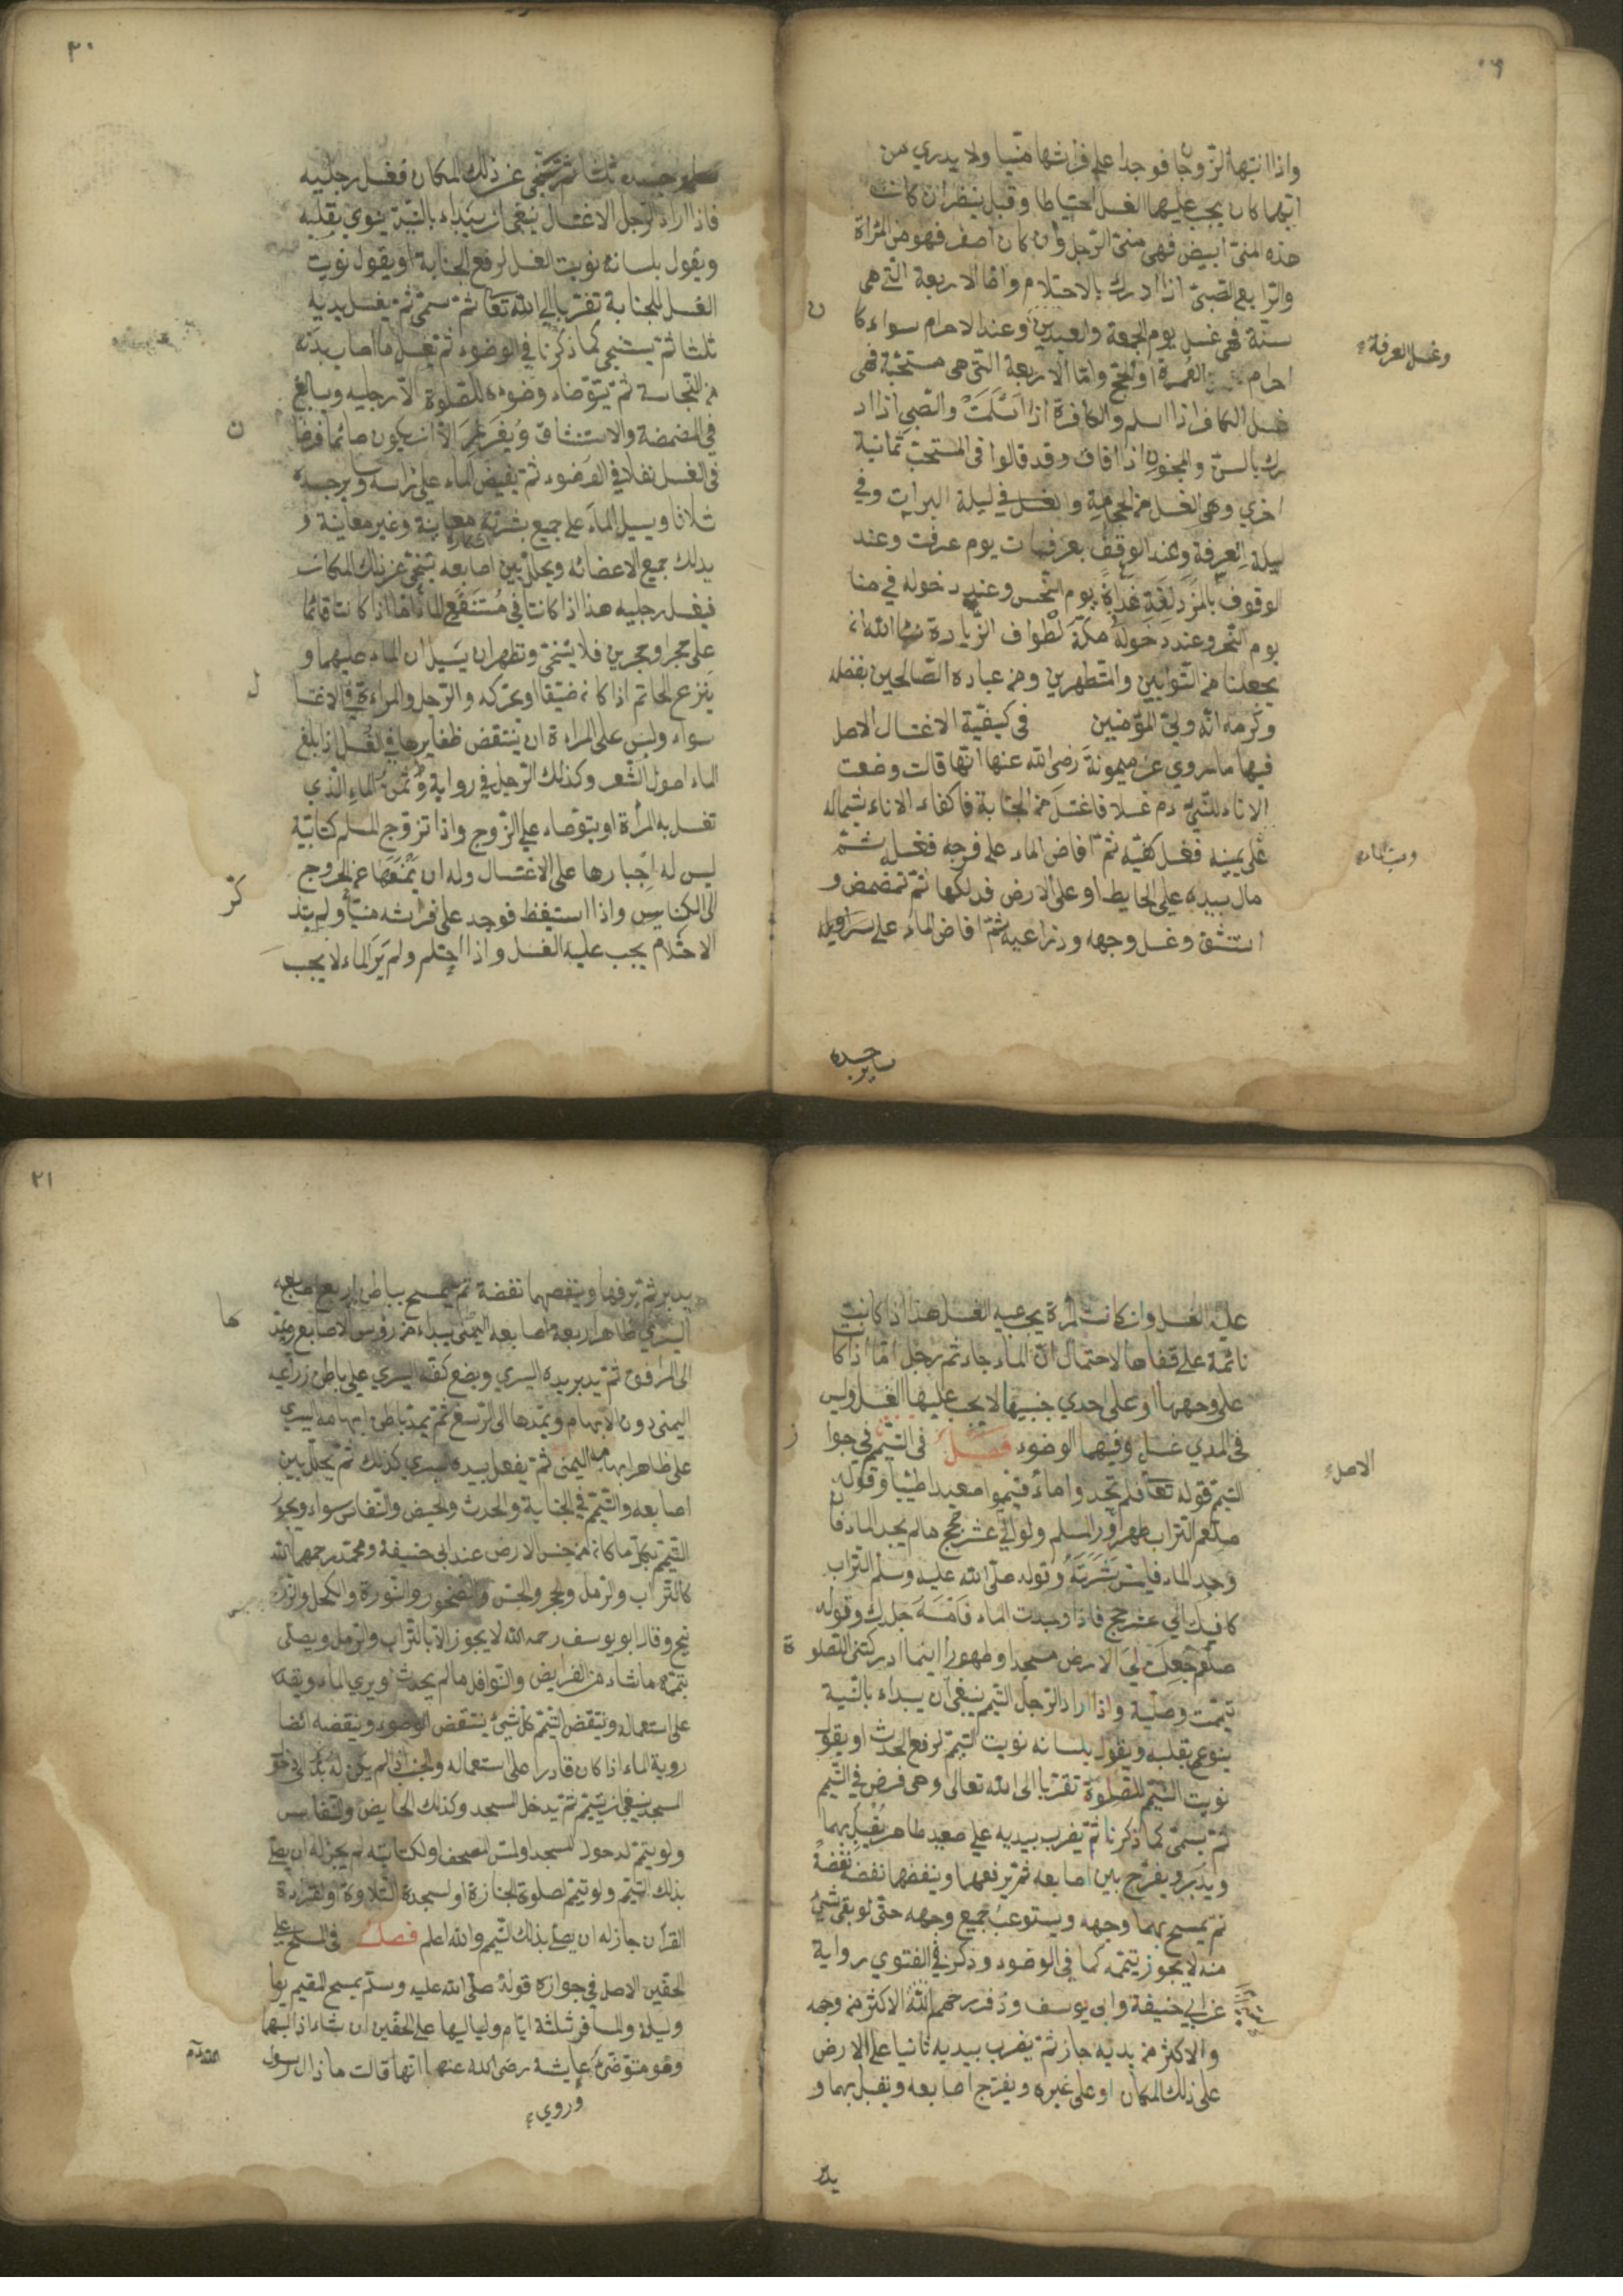 واذا انتبها الزوجان فوجدا على فراشها منيا ولا يدري من
ايهما كان يجب عليهما الغسل احتياطا وقيل ينظر ان كانت
هذه المنى ابيض فهى منى الرجل وان كان اصفر فهو من المراة
والرابع الصبى اذا ادرك بالاحتلام واما الاربعة التى هى
سنة فهى غسل يوم الجمعة والعيدين وعند الاحرام سواء كان
وغسل العرفة
احرام العمرة او الحج واما الاربعة التى هى مستحبة فهى
غسل الكافر اذا اسلم والكافرة اذا اسلمت والصبى اذا اد
رك بالسن والمجنون اذا افاق وقد قالوا فى المستحب ثمانية
اخري وهى الغسل من الحجامة والغسل فى ليلة البرات وفي
ليلة العرفة وعند الوقف بعرفات يوم عرفت وعند
الوقوف بالمزدلفة غداة يوم النحر وعند دخوله في منا
يوم النحر وعند دخوله مكة لطواف الزيارة
يجعلنا من التوابين والمتطهرين ومن عباده الصالحين بفضله
وكرمه انه ولى المؤمنين فى كيفية الاغتسال الاصل
فيها ما روي عن ميمونة رضى الله عنها انها قالت وضعت
الاناء للنبى دم غسلا فاغتسل من الجنابة فاكفاء الاناء بشماله
على يمينه فغسل كفيه ثم افاض الماء على فرجه فغسله ثم
مال بيده على الحايط او على الارض فدلكها ثم تمضمض و
استنشق وغسل وجهه وذراعيه ثم افاض الماء على
ساير جسده
٢٠
ساير جسده ثلثا ثم تنحى عن ذلك المكان فغسل رجليه
فاذا اراد الرجل الاغتسال ينبغى ان يبداء بالنية ينوي بقلبه
ويقول بلسانه نويت الغسل لرفع الجنابة او يقول نويت
الغسل للجنابة تقربا الى الله تعا ثم سمى ثم يغسل يديه
ثلثا ثم يستنجى كما ذكرنا في الوضوء ثم يغسل ما اصاب بدنه
من النجاسة ثم يتوضاء وضوءه للصلوة الا رجليه ويبالغ
في المضمضة والاستنشاق ويغرغر الا ان يكون صائما فرضان
فى الغسل نفلا في الوضوء ثم يفيض الماء على راسه وساير جسده
ثلاثا ويسيل الماء على جميع بشرته معاينة وغير معاينة و
يدلك جميع الاعضائه ويخلل بين اصابعه تنحى عن ذلك المكان
فيغسل رجليه هذا اذا كانتا في مستنقع الماء اما اذا كانتا قائما
على حجر او حجرين فلا يتنحى وتطهران يسيلان الماء عليهما و
ينزع الخاتم اذا كان ضيقا او يحركه والرجل والمراءة في الاغتسال
سواء وليس على المراة ان ينتقض ظفايرها في الغسل اذا بلغ
الماء اصول الشعر وكذلك الرجل في رواية وثمن الماء الذي
تغسل به المرأة او يتوضاء على الزوج واذا تزوج المسلم كتابية
ليس له اجبارها على الاغتسال وله ان يمنعها عن الخروج
الى الكنايس واذا استيقظ فوجد على فراشه منيا ولم يتذكر
الاحتلام يجب عليه الغسل واذا احتلم ولم ير الماء لا يجب
عليه الغسل وان كانت المرأة يجب عليه الغسل هذا اذا كانت
نائمة على قفاها لاحتمال ان الماء جاء ثم رجل اما اذا كانت
على وجهها او على احدي جنبيها لا يجب عليها الغسل وليس
فى المذي غسل وفيها الوضوء فصل فى التيمم في جواز
الاصل
التيمم قوله تعا فلم تجدوا ماء فتيمموا صعيدا طيبا وقوله
صلعم التراب طهور المسلم ولو الى عشر حجج ما لم يجد الماء فان
وجد الماء فليمس بشرته وقوله صلى الله عليه وسلم التراب
كافيك الى عشر حجج فاذا وجدت الماء فامسه جلدك وقوله
صلعم جعلت لى الارض مسجدا وطهورا اينما ادركتنى الصلوة
تيممت وصليت واذا اراد الرجل التيمم ينبغى ان يبداء بالنية
ينوى بقلبه ويقول بلسانه نويت التيمم لرفع الحدث او يقول
نويت التيمم للصلوة تقربا الى الله تعالى وهى فرض في التيمم
ثم يسمى كما ذكرنا ثم يضرب بيديه على صعيد طاهر يقبل بهما
ويدبر ويفرج بين اصابعه ثم يرفعهما وينفضهما نفضة نفضة
ثم يمسح بهما وجهه ويستوعب جميع وجهه حتى لو بقى شئ
منه لا يجوز تيممه كما فى الوضوء وذكر في الفتوي رواية
عن ابى حنيفة وابى يوسف وزفر رحمهم الله الاكثر من وجهه
والاكثر من يديه جاز ثم يضرب بيديه ثانيا على الارض
على ذلك المكان او على غيره ويفرج اصابعه ويقبل بهما و
يدبر
٢١
يدبر ثم يرفها وينفضهما نفضة ثم يمسح بباطن اربع اصابعه
اليسري ظاهر اربعة اصابعه اليمنى يبداء من رؤس الاصابع ويمدها
الى المرافق ثم يدبر يده اليسري ويضع كفه اليسري على باطن زراعيه
اليمنى دون الابهام ويمدها الى الرسغ ثم يمد باطن ابهامه اليسري
على ظاهر ابهامه اليمنى ثم يفعل بيده اليسري كذلك ثم يخلل بين
اصابعه والتيمم في الجنابة والحدث والحيض والنفاس سواء ويجوز
التيمم بكل ما كان من جنس الارض عند ابى حنيفة ومحمد رحمهما الله
كالتراب والرمل والحجر والجص والصخور والنورة والكحل والزر
نيخ وقال ابو يوسف رحمه الله لا يجوز الا بالتراب والرمل ويصلى
بتيممه ما شاء من الفرايض والنوافل ما لم يحدث او يري الماء ويقدر
على استعماله وينتقض التيمم كل شئ ينتقض الوضوء وينقضه ايضا
روية الماء اذا كان قادرا على استعماله والجنب اذا لم يكن له بد الى دخول
المسجد ينبغى ان يتيمم ثم يدخل المسجد وكذلك الحايض والنفايس
ولو يتيمم لدخول المسجد او لمس المصحف او لكتابته لم يجز له ان يصلى
بذلك التيمم ولو تيمم لصلوة الجنازة او لسجدة التلاوة او لقراءة
القرأن جاز له ان يصلى بذلك التيمم والله اعلم فصل فى المسح على
الخفين الاصل في جوازه قوله صلى الله عليه وسلم يمسح المقيم يوما
وليلة والمسافر ثلثة ايام ولياليها على الخفين ان شاء اذا لبسهما
وهو متوضئ عايشة رضى الله عنها انها قالت ما زال رسول
وروي